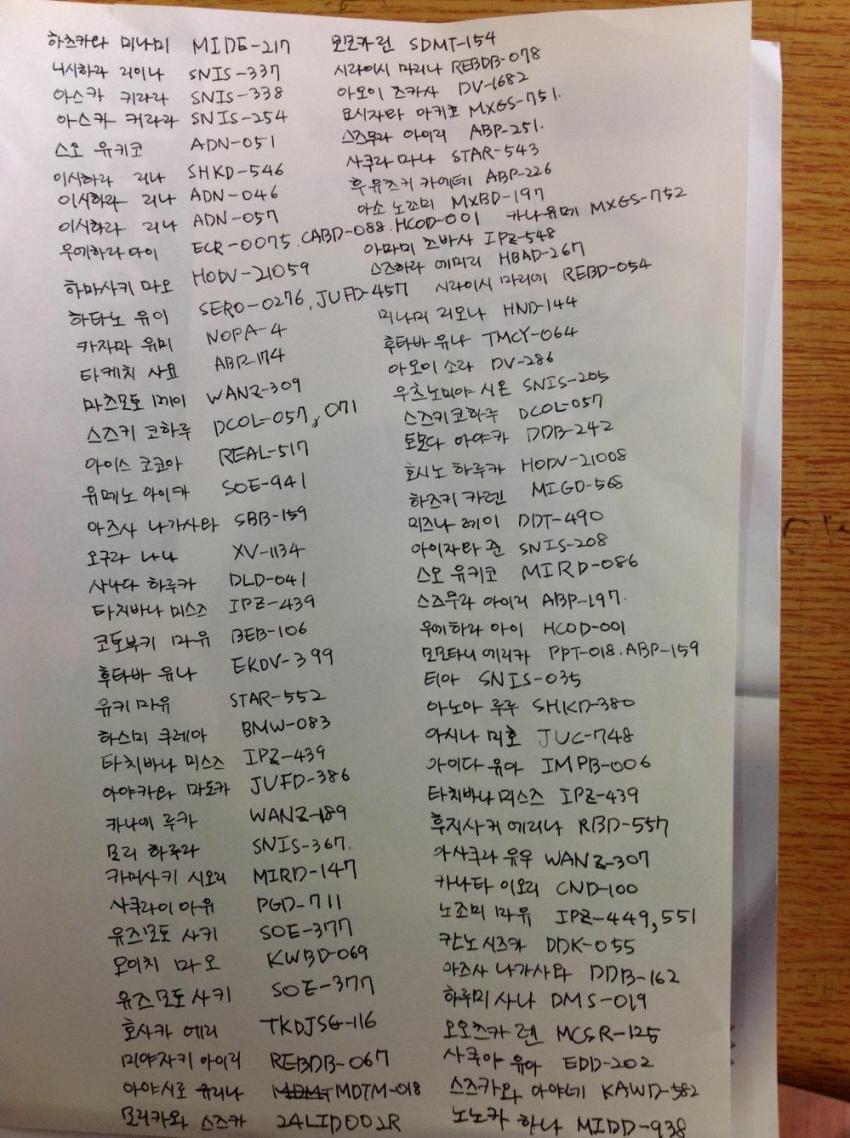 하츠카와 미나미 MIDE-217
니시하라 리이나 SNIS-337
아스카 키라라 SNIS-338
아스카 키라라 SNIS-254
스오 유키코 ADN-051
이시하라 리나 SHKD-546
이시하라 리나 ADN-046
이시하라 리나 ADN-057
우에하라 아이 ECR-0075, CABD-088, HCOD-001
하마사키 마오 HODV-21059
하타노 유이 SERO-0276, JUFD-457
카자마 유미 NOPA-4
타케치 사요 ABP-174
마츠모토 메이 WANZ-309
스즈키 코하루 DCOL-057, 071
아이스 코코아 REAL-517
유메노 아이카 SOE-941
아즈사 나가사와 SBB-159
오구라 나나 XV-1134
사나다 하루카 DLD-041
타치바나 미스즈 IPZ-439
코토부키 마유 BEB-106
후타바 유나 EKDV-399
유키 마유 STAR-552
하스미 쿠레아 BMW-083
타치바나 미스즈 IPZ-439
아야카와 마도카 JUFD-386
카나에 루카 WANZ-189
모리 하루라 SNIS-367.
카미사키 시오리 MIRD-147
사쿠라이 아유 PGD-711
유즈모토 사키 SOE-377
모이치 마오 KWBD-069
유즈모토 사키 SOE-377
호사카 에리 TKDJSG-116
미야자키 아이리 REBDB-067
아야시로 유리나 MDTM-018
모리카와 스즈카 24LID002R
모모카 린 SDMT-154
시라이시 마리나 REBDB-078
아오이 츠카사 DV-1682
요시자와 아키호 MXGS-751.
스즈무라 아이리 ABP-251.
사쿠라 마나 STAR-543
후유츠키 카에데 ABP-226
아소 노조미 MXBD-197
카나 유메 MXGS-752
아마미 츠바사 IPZ-548
스즈하라 에미리 HBAD-267
시라이시 마리에 REBD-054
미나미 리오나 HND-144
후타바 유나 TMCY-064
아오이 소라 DV-286
우츠노미야 시온 SNIS-205
스즈키 코하루 DCOL-057
토모다 아야카 DDB-242
호시노 하루카 HODV-21008
하즈키 카렌 MIGD-568
미즈나 레이 DDT-490
아이자와 준 SNIS-208
스오 유키코 MIRD-086
스즈무라 아이리 ABP-197.
우에하라 아이 HCOD-001
모모타니 에리카 PPT-018. ABP-159
티아 SNIS-035
아노아 루루 SHKD-380
아시나 미호 JUC-748
아이다 유아 IMPB-006
타치바나 미스즈 IPZ-439
후지사키 에리나 RBD-557
아사쿠라 유우 WANZ-307
카나타 이오리 CND-100
노조미 마유 IPZ-449, 551
칸노 시즈카 DDK-055
아즈사 나가사와 DDB-162
하루미 사나 DMS-019
오오츠카 렌 MCSR-125
사쿠아 유아 EDD-202
스즈카와 아야네 KAWD-582
노노카 하나 MIDD-938